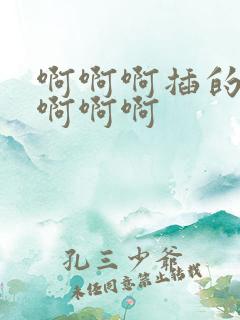 啊啊啊插的
啊啊啊
孔三少爷
未经同意禁止转载